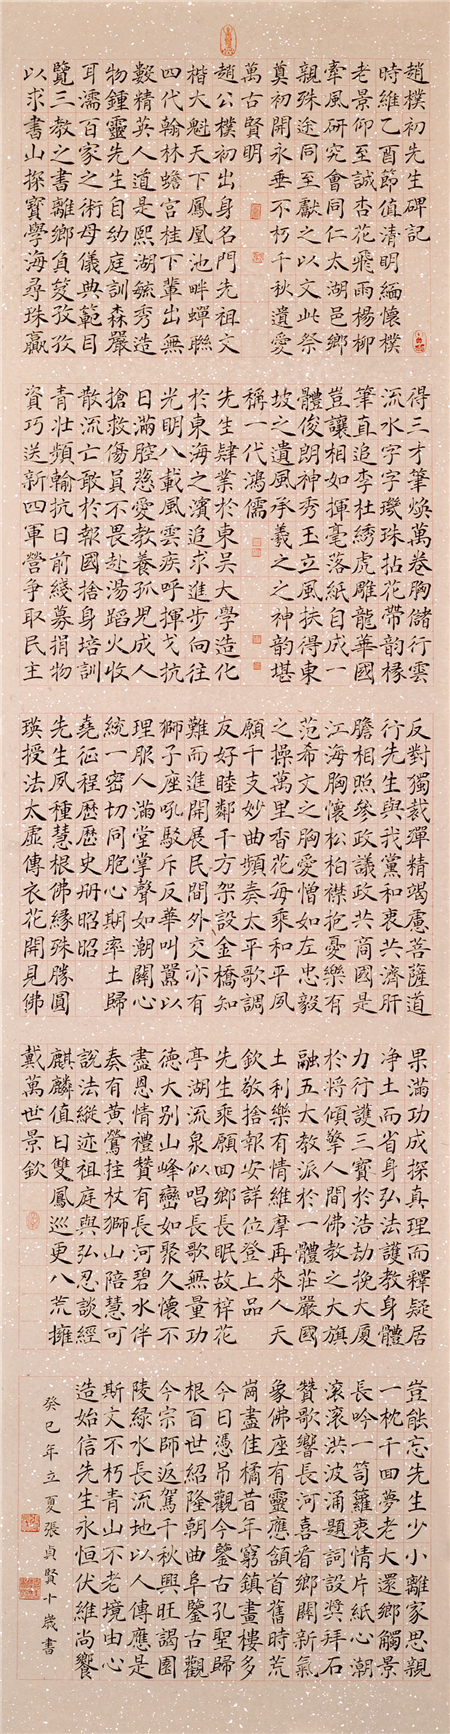 趙樸初先生碑記
時維乙酉節值清明緬懷樸
老景仰至誠杏花飛雨楊柳
牽風研究會同仁太湖邑鄉
親殊途同至獻之以文此祭
奠初開永垂不朽千秋遺愛
萬古賢明
趙公樸初出身名門先祖文
楷大魁天下鳳凰池畔蟬聯
四代翰林蟾宮桂下輩出無
數精英人道是熙湖毓秀造
物鍾靈先生自幼庭訓森嚴
耳濡百家之術母儀典範目
覽三教之書離鄉負笈孜孜
以求書山探寶學海尋珠贏
得三才筆煥萬卷胸儲行雲
流水字字璣珠拈花帶韵椽
筆直追李杜綉虎雕龍華國
豈讓相如揮毫落紙自成一
體俊朗神秀玉立風扶得東
坡之遺風承羲之之神韵堪
稱一代鴻儒
先生肄業於東吳大學造化
於東海之濱追求進步向往
光明八載風雲疾呼揮戈抗
日滿腔慈愛教養孤兒成人
搶救傷員不畏赴湯蹈火收
散流亡敢於報國捨身培訓
青壯頻輸抗日前綫募捐物
資巧送新四軍營爭取民主
反對獨裁殫精竭慮菩薩道
行先生與我黨和衷共濟肝
膽相照參政議政共商國是
江海胸懷松柏襟抱憂樂有
范希文之胸愛憎如左忠毅
之操萬里香花每乘和平夙
願千支妙曲頻奏太平歌調
友好睦鄰千方架設金橋知
難而進開展民間外交亦有
獅子座吼駁斥反華叫囂以
理服人滿堂掌聲如潮關心
統一密切同胞心期率土歸
堯征程歷歷史册昭昭
先生夙種慧根佛緣殊勝圓
瑛授法太虛傳衣花開見佛
果滿功成探真理而釋疑居
净土而省身弘法護教身體
力行護三寶於浩劫挽大廈
於將傾擎人間佛教之大旗
融五大教派於一體莊嚴國
土利樂有情維摩再來人天
欽敬捨報安詳位登上品
先生乘願回鄉長眠故梓花
亭湖流泉似唱長歌無量功
德大別山峰巒如聚久懷不
盡恩情禮贊有長河碧水伴
奏有黃鶯拄杖獅山陪慧可
說法縱迹祖庭與弘忍談經
麒麟值日雙鳳巡更八荒擁
戴萬世景欽
豈能忘先生少小離家思親
一枕千回夢老大還鄉觸景
長吟一笥蘿衷情片紙心潮
滾滾洪波涌題詞設奬拜石
贊歌響長河喜看鄉關新氣
象佛座有靈應頷首舊時荒
崗盡佳橘昔年窮鎮畫樓多
今日憑吊觀今鑒古孔聖歸
根百世紹隆朝曲阜鑒古觀
今宗師返駕千秋興旺謁園
陵綠水長流地以人傳應是
斯文不朽青山不老境由心
造始信先生永恒伏維尚饗
癸巳年立夏張貞賢十歲書